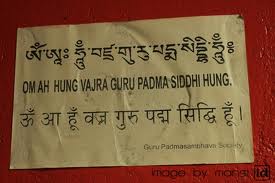 ཨོཾ་ཨཱཿཧཱུྃ་བཛྲ་གུ་རུ་པདྨ་སིདྡྷི་ཧཱུྃ༔
OM AH HUNG VAJRA GURU PADMA SIDDHI HUNG.
ॐ आ हूँ वज्र गुरु पद्म सिद्धि हूँ ।
Guru Padmasambhava Society
image by